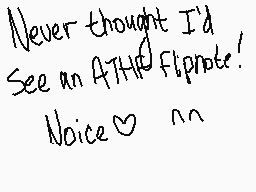 Never thought I'd
See an ATHF Flipnote!
Noice♡ nn